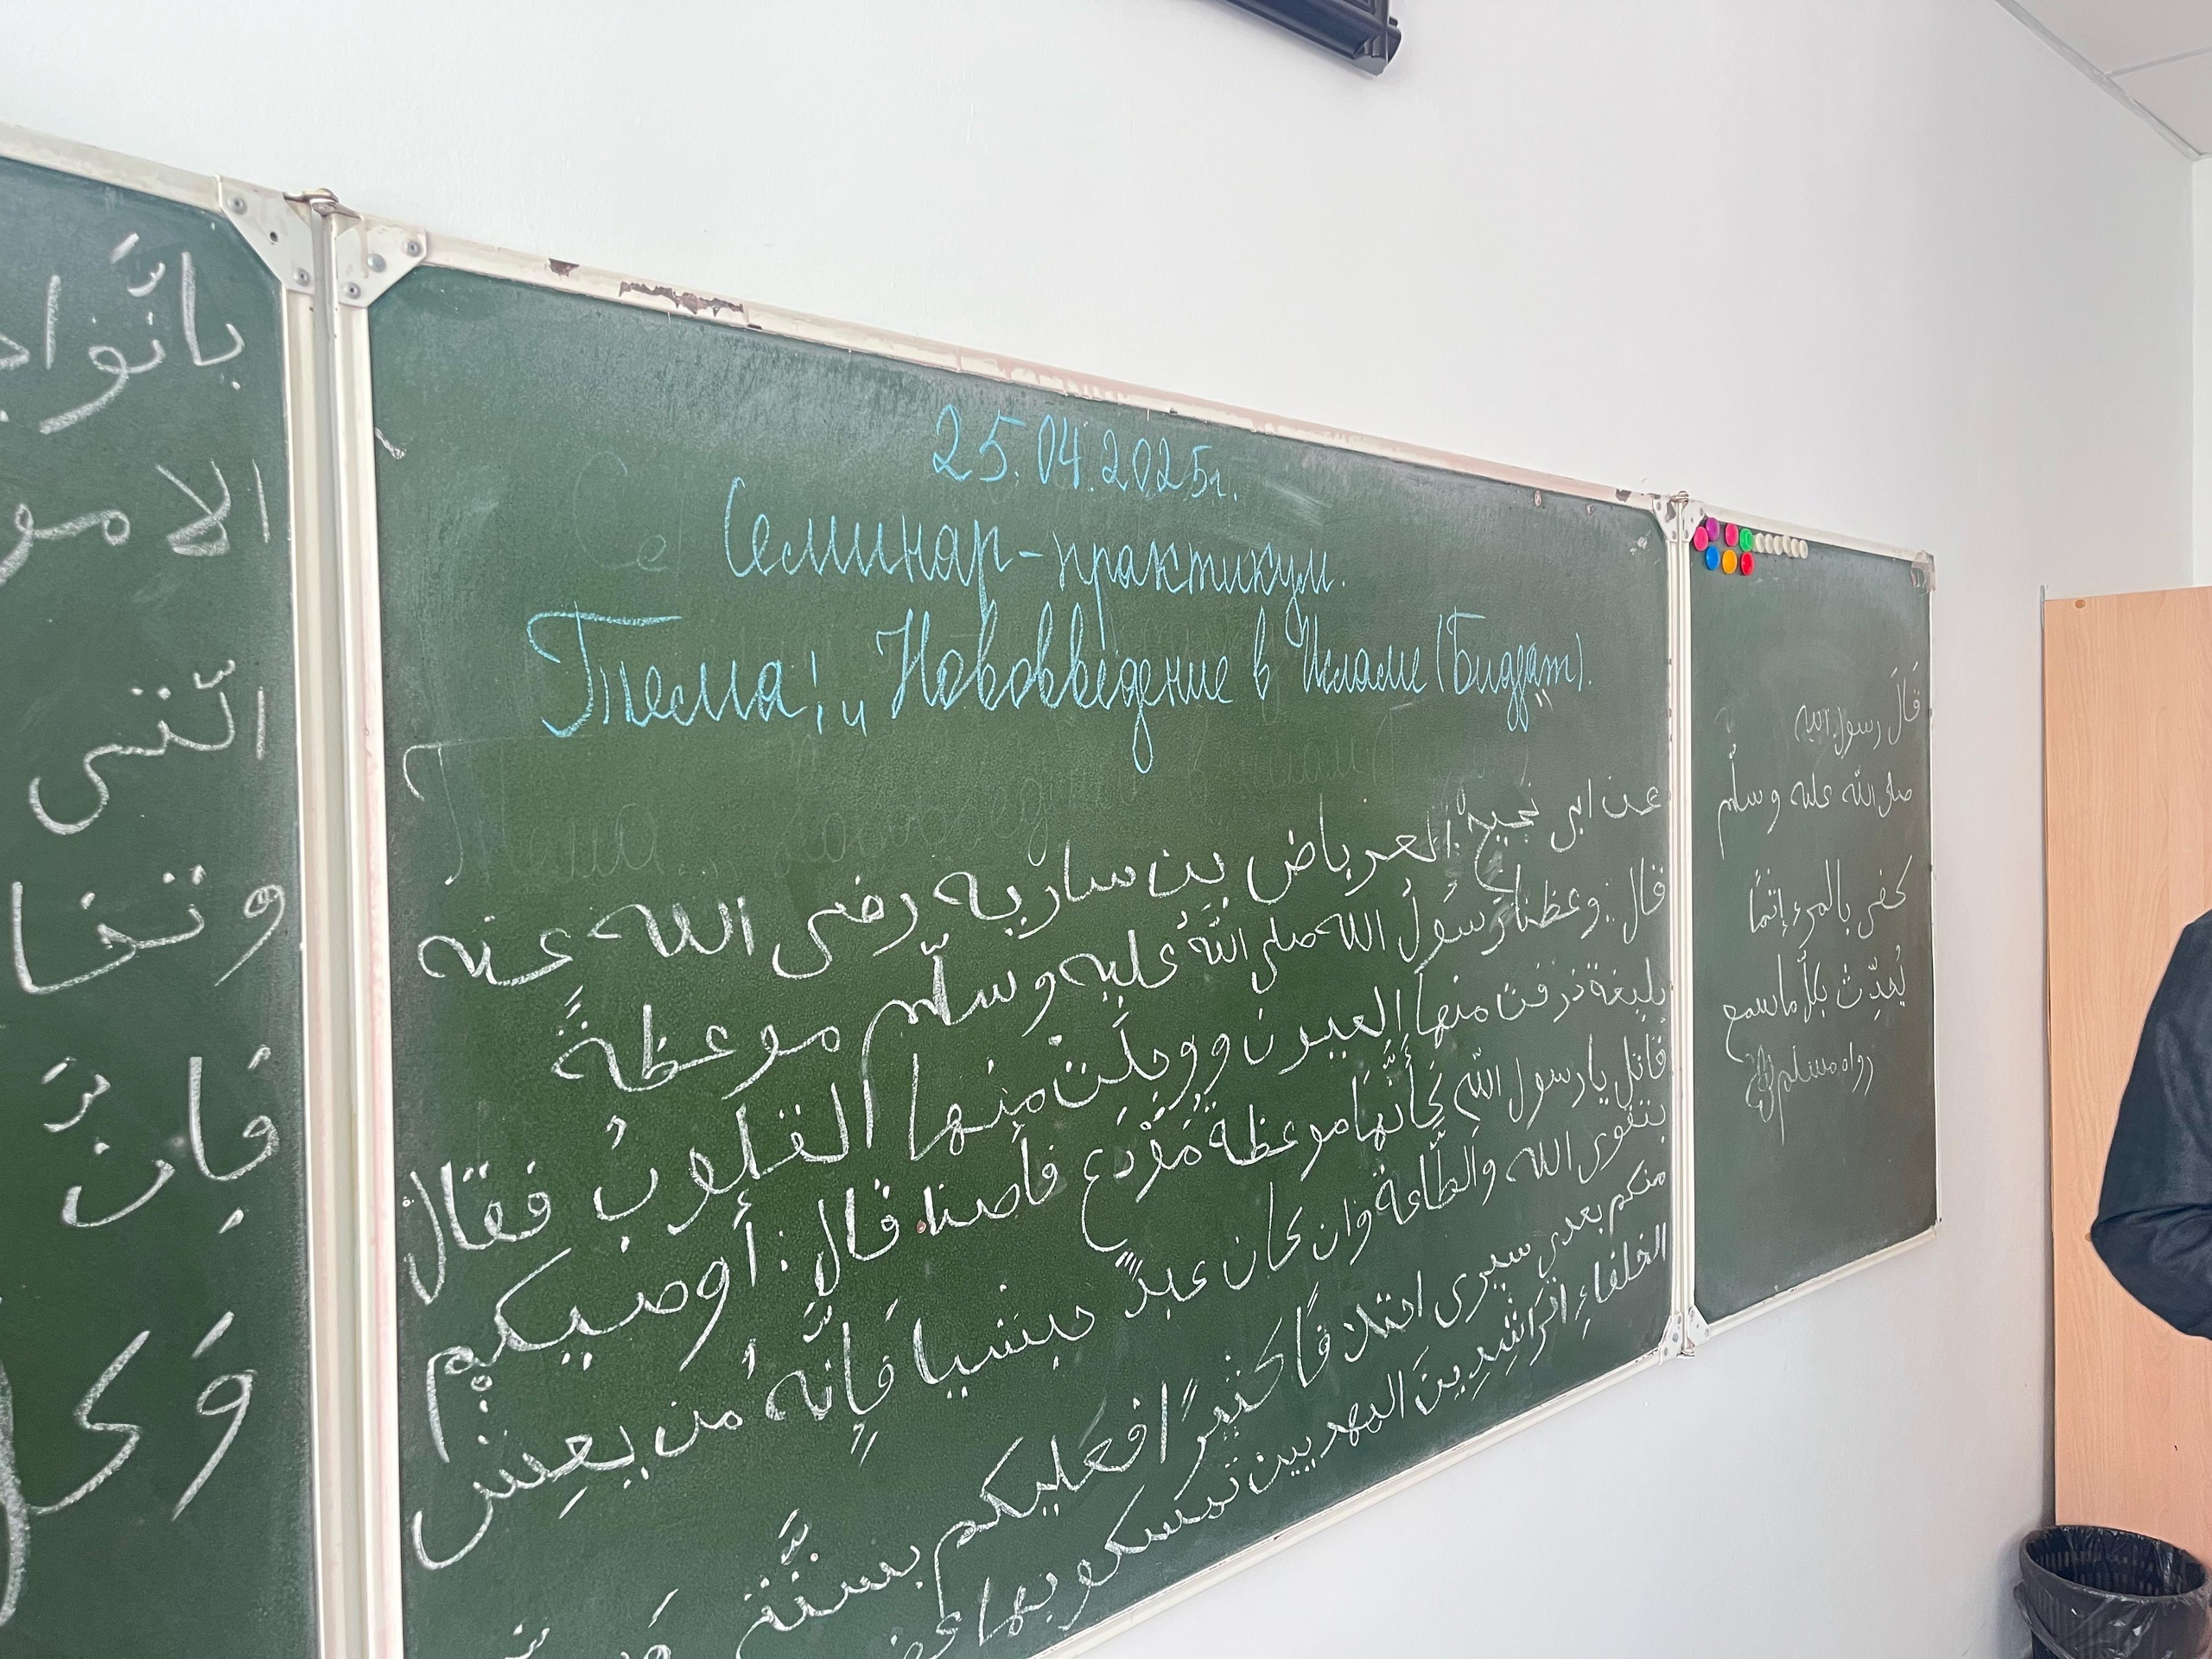 25.04.2025г.
Семинар-практикум.
Тема: „Нововведение в Исламе (Бидда́т)".
عن ابى نجيح العرباض بن ساريه رضى الله عنه
قال: وعظنا رَسُولُ الله صلى اللهُ عليه وسلّم موعظةً
بليغة ذرفت منها العيون ووجلَت منها القلوبُ فقال
قائل يا رسول اللهِ كأنَّها موعظة مُوَدِّع فأوصنا. قال: أوصيكم
بتقوى الله والطّاعة وان كان عبدً حبشيا فَإِنَّه من يعِش
منكم بعدى سيرى اختلافًا كثيرًا فعليكم بسنَّتى
الخلفاءِ الرَاشِدِينَ المهديين تمسكو بها
قَالَ رسول الله
صلى الله عليه وسلّم
كفى بالمرء إثمًا
يُحَدِّث بكلّ ما سمع
رواه مسلم
الامو
الّتى
وتفا
فَإنَّ
وَكل